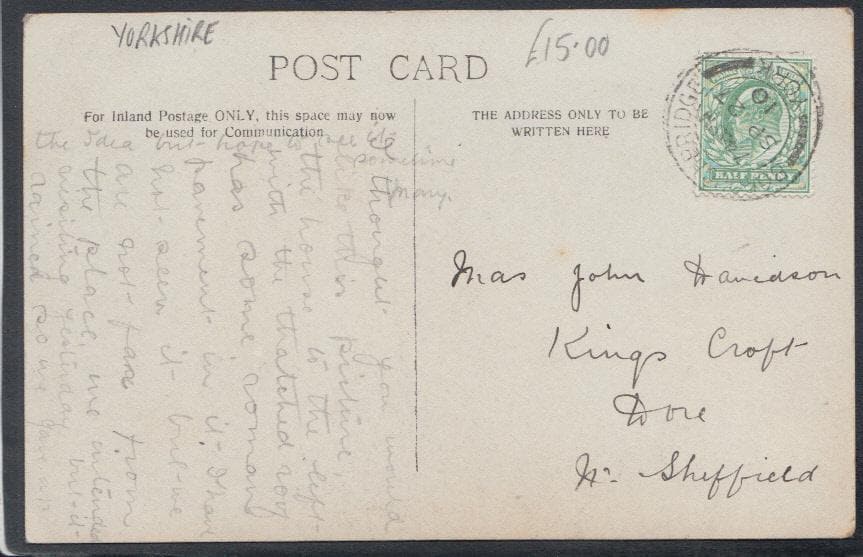 YORKSHIRE
£15.00
POST CARD
For Inland Postage ONLY, this space may now
be used for Communication
THE ADDRESS ONLY TO BE
WRITTEN HERE
HALF PENNY
BRIDGE
YORK
SP
10
I thought you would
like this picture,
the house to the left
with the thatched roof
has some roman
pavement in it. I have
not seen it but we
are not far from
the place, we intended
visiting yesterday but it
rained so we gave up
the idea but hope to see it
sometime
Mary.
Mrs John Davidson
Kings Croft
Dore
Nr. Sheffield